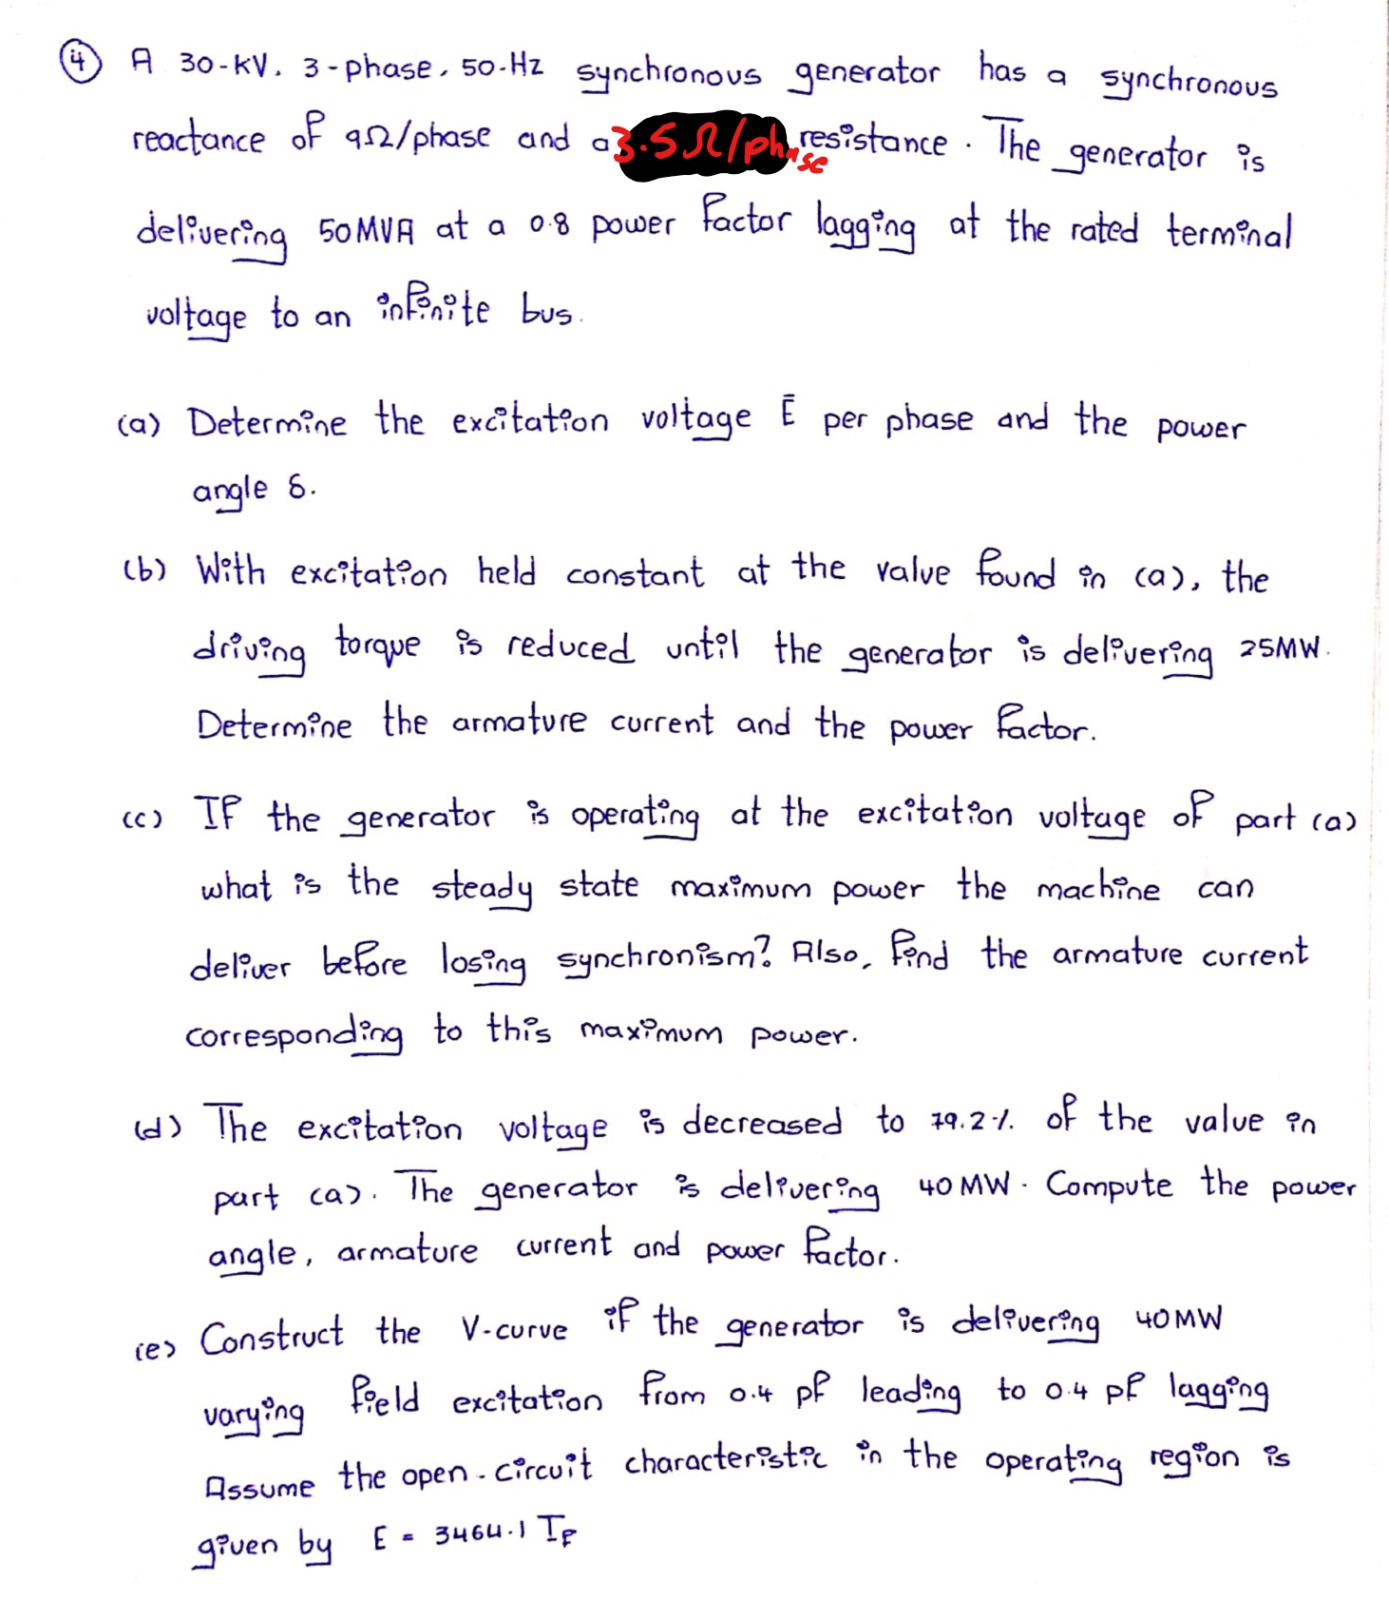 4 A 30-kV, 3-phase, 50-Hz synchronous generator has a synchronous
reactance of 9Ω/phase and a 3.5Ω/phase resistance. The generator is
delivering 50MVA at a 0.8 power factor lagging at the rated terminal
voltage to an infinite bus.
(a) Determine the excitation voltage Ē per phase and the power
angle δ.
(b) With excitation held constant at the value found in (a), the
driving torque is reduced until the generator is delivering 25MW.
Determine the armature current and the power factor.
(c) If the generator is operating at the excitation voltage of part (a)
what is the steady state maximum power the machine can
deliver before losing synchronism? Also, find the armature current
corresponding to this maximum power.
(d) The excitation voltage is decreased to 79.2% of the value in
part (a). The generator is delivering 40 MW. Compute the power
angle, armature current and power factor.
(e) Construct the V-curve if the generator is delivering 40MW
varying field excitation from 0.4 pf leading to 0.4 pf lagging
Assume the open-circuit characteristic in the operating region is
given by E = 3464.1 If